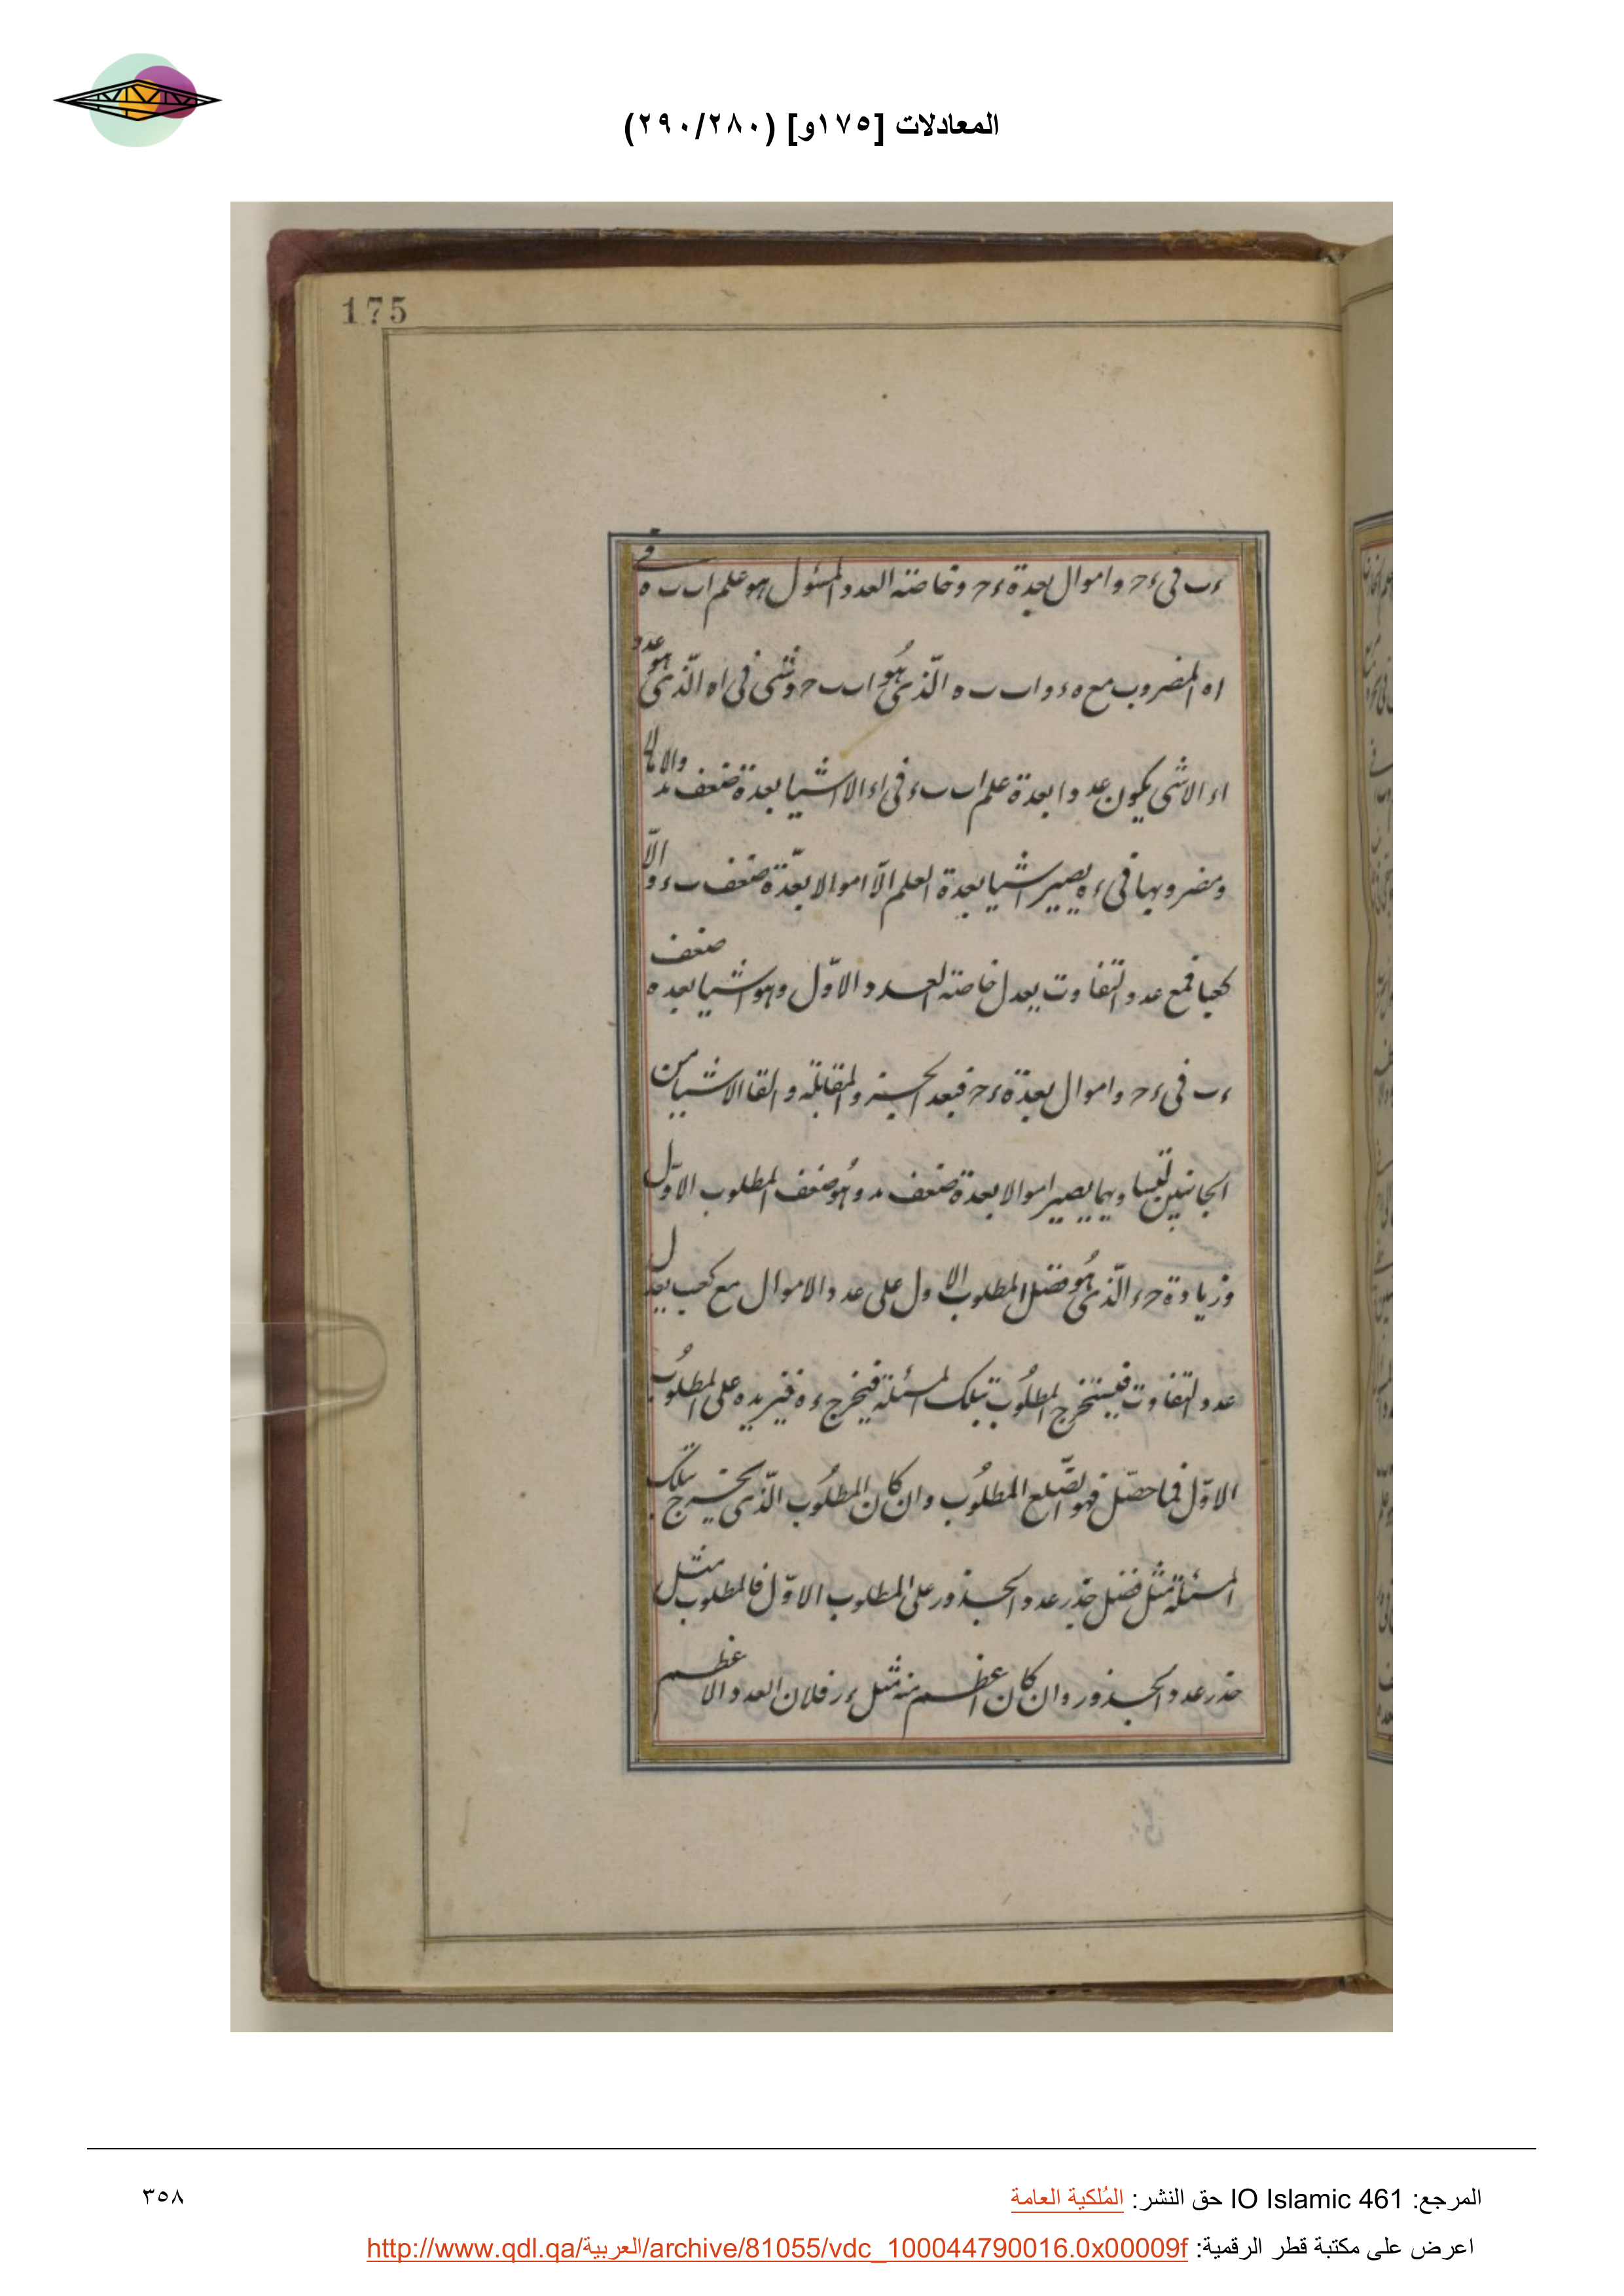 المعادلات [١٧٥و] (٢٨٠/٢٩٠)
175
ءب فى ءح واموال بعدة ءح وخاصته العدد المسئول هو علم اب ب ه فى
اه المضروب مع ه ء و اب ب ه الذى هو اب ب ح وشى فى اه الذى هو عدد
اء الا شى يكون عددا بعدة علم اب ب ء فى اء الا اشيا بعدة ضعف والا مالا
ومضروبها فى ءه يصير اشيا بعدة العلم الا اموالا بعدة ضعف ب ء والا
كعبا فمع عدد التفاوت يعدل خاصته العدد الاول وهو اشيا بعده ضعف
ءب فى ءح واموال بعدة ءح فبعد الجبر والمقابلة والقا الاشيا من
الجانبين لتساويهما يصير اموالا بعدة ضعف وهو ضعف المطلوب الاول
وزيادة حء الذى هو فضل المطلوب الاول على عدد الاموال مع كعب يعدل
عدد التفاوت فيستخرج المطلوب بتلك المسئلة فيخرج ءه فنزيده على المطلوب
الاول فما حصل فهو الضلع المطلوب وان كان المطلوب الذى يخرج بتلك
المسئلة مثل فضل جذر عدد الجذور على المطلوب الاول فالمطلوب مثل
جذر عدد الجذور وان كان اعظم منه مثل ءر فلان العدد الاعظم
المرجع: IO Islamic 461 حق النشر: المُلكية العامة
٣٥٨
اعرض على مكتبة قطر الرقمية: http://www.qdl.qa/العربية/archive/81055/vdc_100044790016.0x00009f